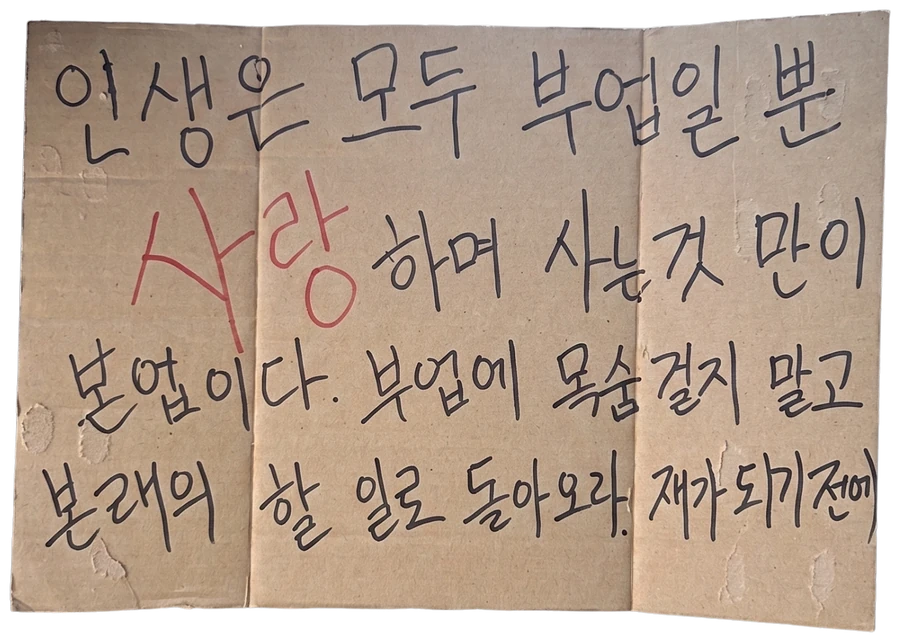 인생은 모두 부업일 뿐
사랑하며 사는것 만이
본업이다. 부업에 목숨걸지 말고
본래의 할 일로 돌아오라. 재가되기전에